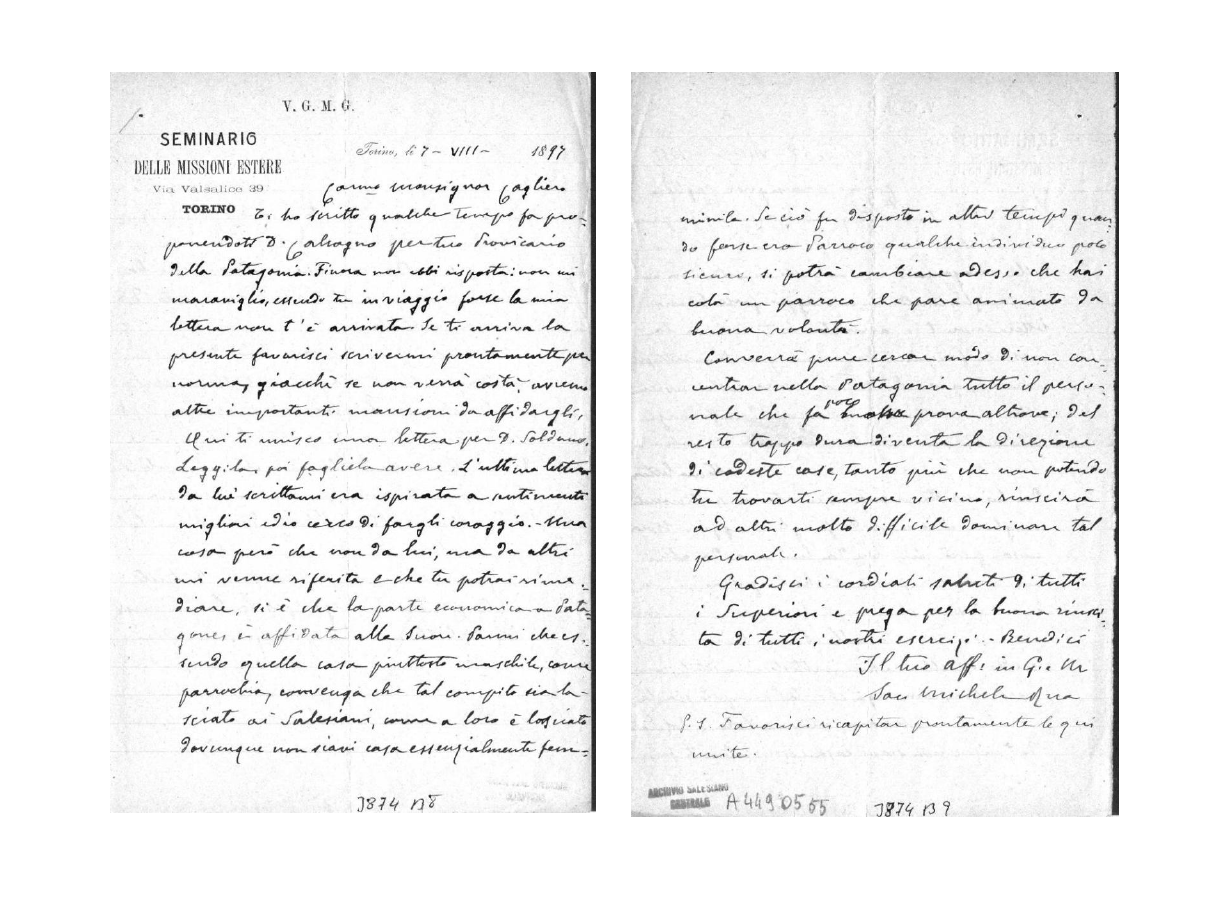 V. G. M. G.
SEMINARIO
DELLE MISSIONI ESTERE
Via Valsalice 39
TORINO
Torino, li 7 - VIII - 1897
Carmo Monsignor Cagliero
Ti ho scritto qualche tempo fa pro-
ponendoti D. Calcagno per tuo Provicario
della Patagonia. Finora non ebbi risposta: non mi
maraviglio, essendo tu in viaggio forse la mia
lettera non t'è arrivata. Se ti arriva la
presente favorisci scrivermi prontamente per
norma, giacchè se non verrà costà avremo
altre importanti mansioni da affidargli.
Qui ti unisco una lettera per D. Soldano.
Leggila, poi fagliela avere. L'ultima lettera
da lui scrittami era ispirata a sentimenti
migliori ed io cerco di fargli coraggio. - Una
cosa però che non da lui, ma da altri
mi venne riferita e che tu potrai rime-
diare, si è che la parte economica a Pata-
gones è affidata alle Suore. Parmi che es-
sendo quella casa piuttosto maschile, come
parrochia, convenga che tal compito sia la-
sciato ai Salesiani, come a loro è lasciato
dovunque non siavi casa essenzialmente fem-
J874 B8
minile. Se ciò fu disposto in altro tempo quan-
do forse era Parroco qualche individuo poco
sicuro, si potrà cambiare adesso che hai
colà un parroco che pare animato da
buona volontà.
Converrà pure cercar modo di non con-
centrar nella Patagonia tutto il perso-
nale che fa poca prova altrove; del
resto troppo dura diventa la direzione
di codeste case, tanto più che non potendo
tu trovarti sempre vicino, riuscirà
ad altri molto difficile dominare tal
personale.
Gradisci i cordiali saluti di tutti
i Superiori e prega per la buona riusci-
ta di tutti i nostri esercizi. - Benedici
Il tuo aff. in G. e M
Sac Michele Rua
P. S. Favorisci ricapitar prontamente le qui
unite.
ARCHIVIO SALESIANO
CENTRALE
A4490555
J874 B9